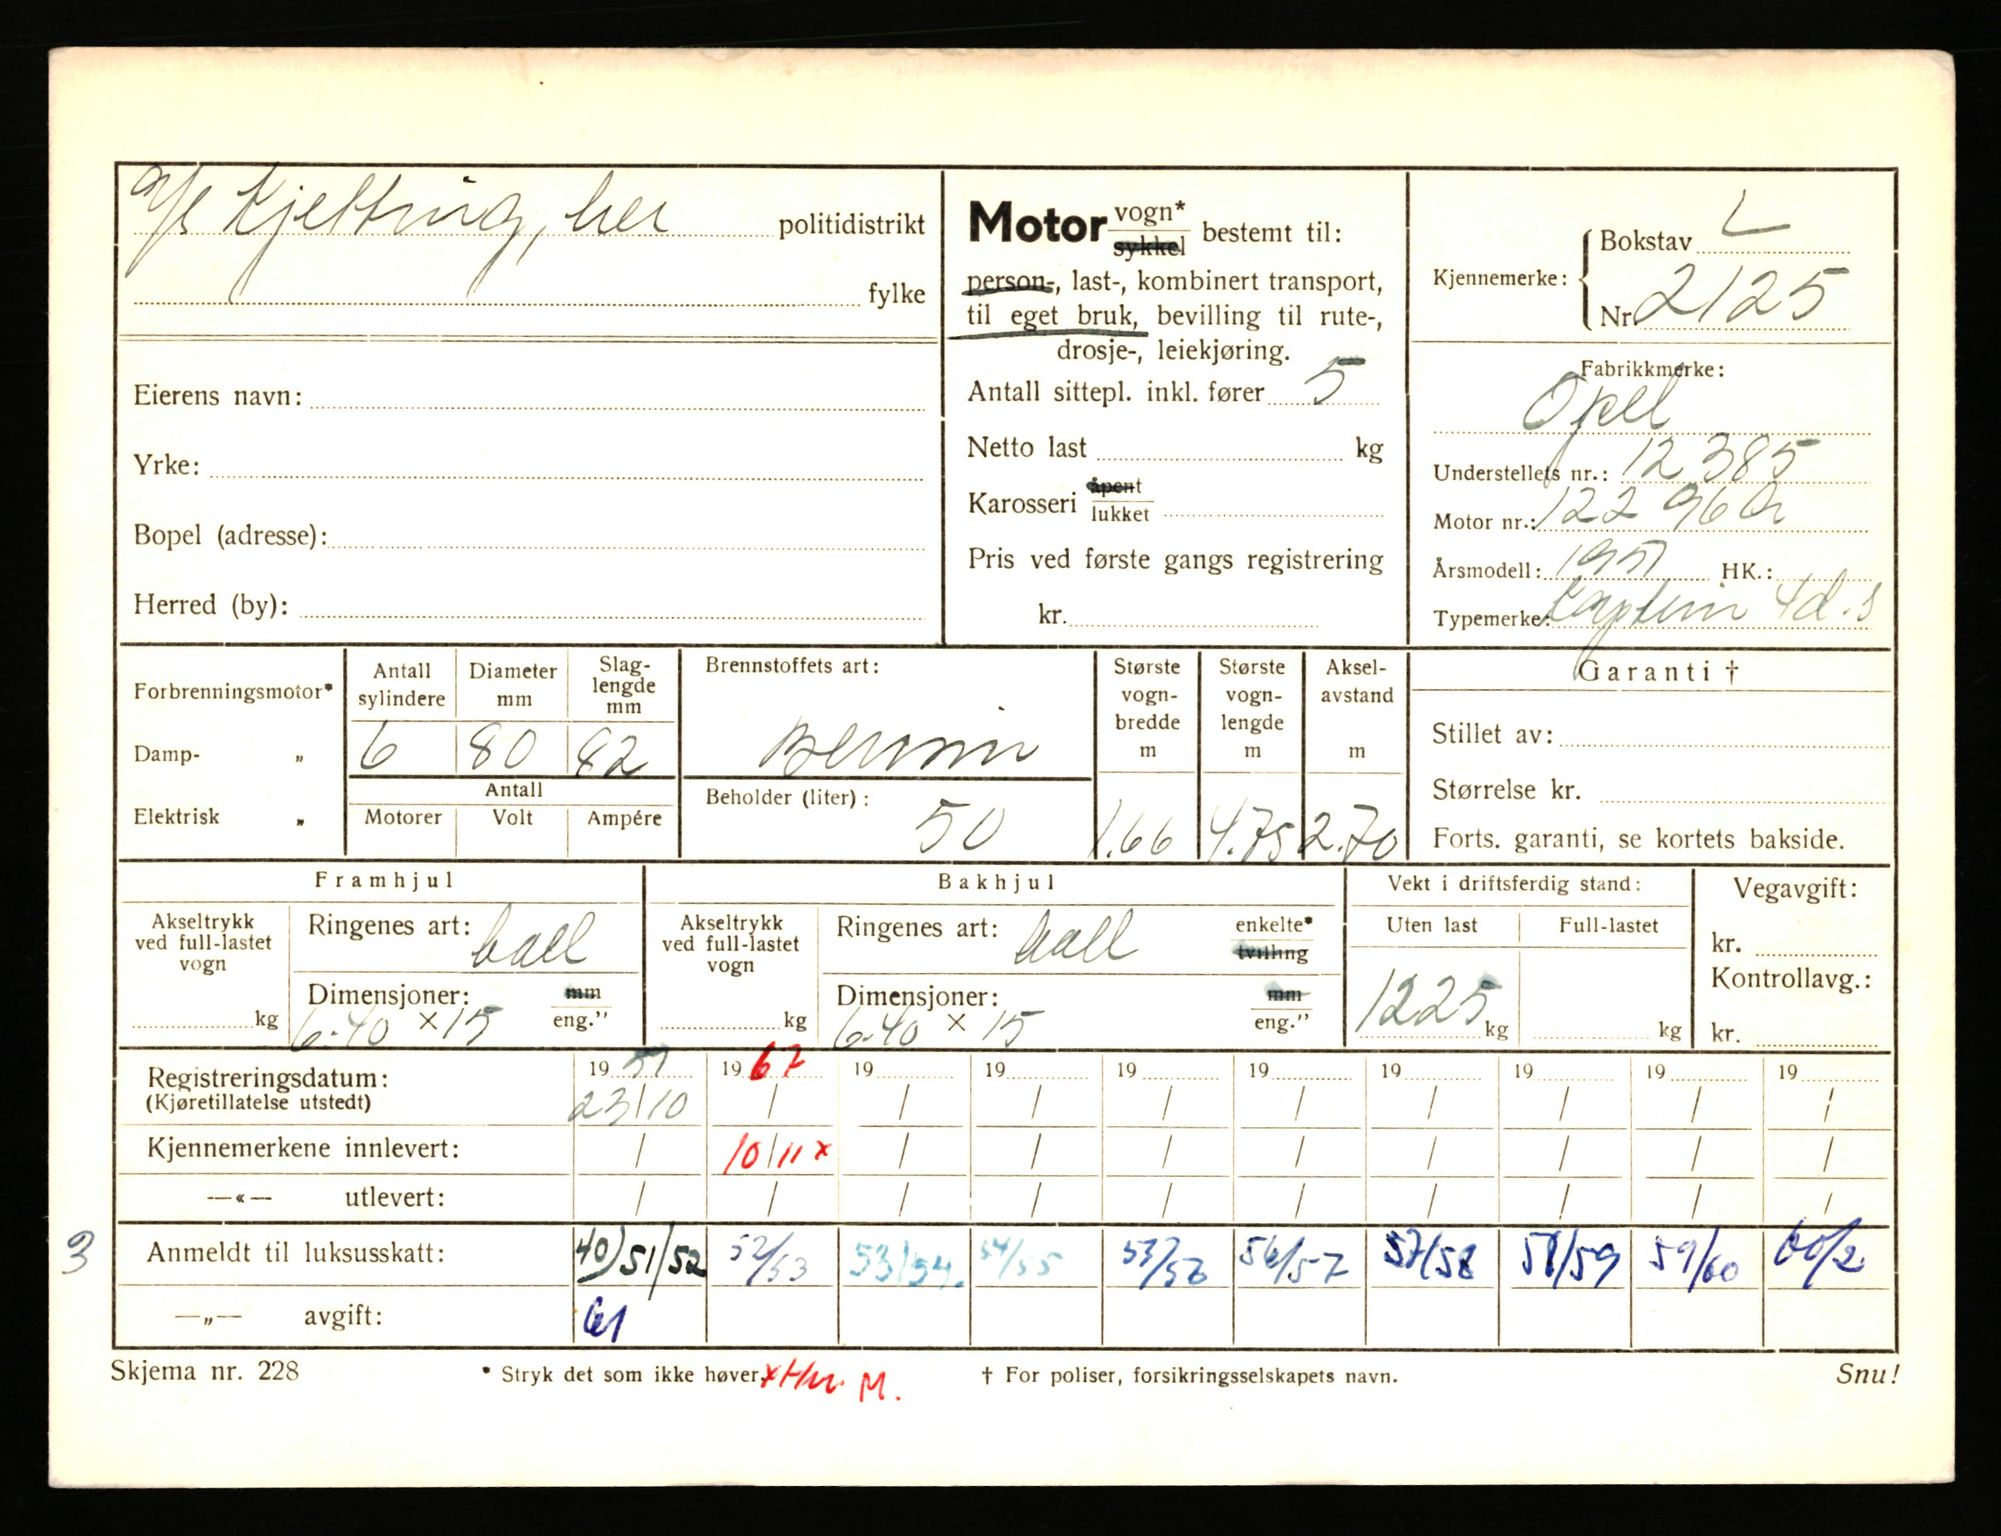 Kjetting, her politidistrikt
fylke
Eierens navn:
Yrke:
Bopel (adresse):
Herred (by):
Motor vogn*
sykkel bestemt til:
person-, last-, kombinert transport,
til eget bruk, bevilling til rute-,
drosje-, leiekjøring.
Antall sittepl. inkl. fører 5
Netto last kg
Karosseri åpent
lukket
Pris ved første gangs registrering
kr.
Kjennemerke: Bokstav L
Nr 2125
Fabrikkmerke:
Opel
Understellets nr.: 12385
Motor nr.:
Årsmodell: 1951 HK.:
Typemerke: Kaptein 4d.s
Forbrenningsmotor*
Damp- „
Elektrisk „
Antall sylindere
6
Diameter mm
80
Slag-
lengde
mm
82
Antall
Motorer Volt Ampére
Brennstoffets art:
Bensin
Beholder (liter): 50
Største
vogn-
bredde
m
1.66
Største
vogn-
lengde
m
4.75
Aksel-
avstand
m
2.70
Garanti †
Stillet av:
Størrelse kr.
Forts. garanti, se kortets bakside.
Framhjul
Akseltrykk
ved full-lastet
vogn
kg
Ringenes art: ball
Dimensjoner: mm
6.40 × 15 eng."
Bakhjul
Akseltrykk
ved full-lastet
vogn
kg
Ringenes art: ball enkelte*
tvilling
Dimensjoner: mm
6.40 × 15 eng."
Vekt i driftsferdig stand:
Uten last Full-lastet
1225 kg kg
Vegavgift:
kr.
Kontrollavg.:
kr.
19 51 19 67 19 19 19 19 19 19 19 19
Registreringsdatum:
(Kjøretillatelse utstedt) 23/10 / / / / / / / / /
Kjennemerkene innlevert: / 10/11 x / / / / / / / /
—«— utlevert: / / / / / / / / / /
3 Anmeldt til luksusskatt: 40/51/52 52/53 53/54. 54/55 56/57 57/58 58/59 59/60 60/2
—„— avgift: 61
Skjema nr. 228 * Stryk det som ikke høver. † For poliser, forsikringsselskapets navn. Snu!